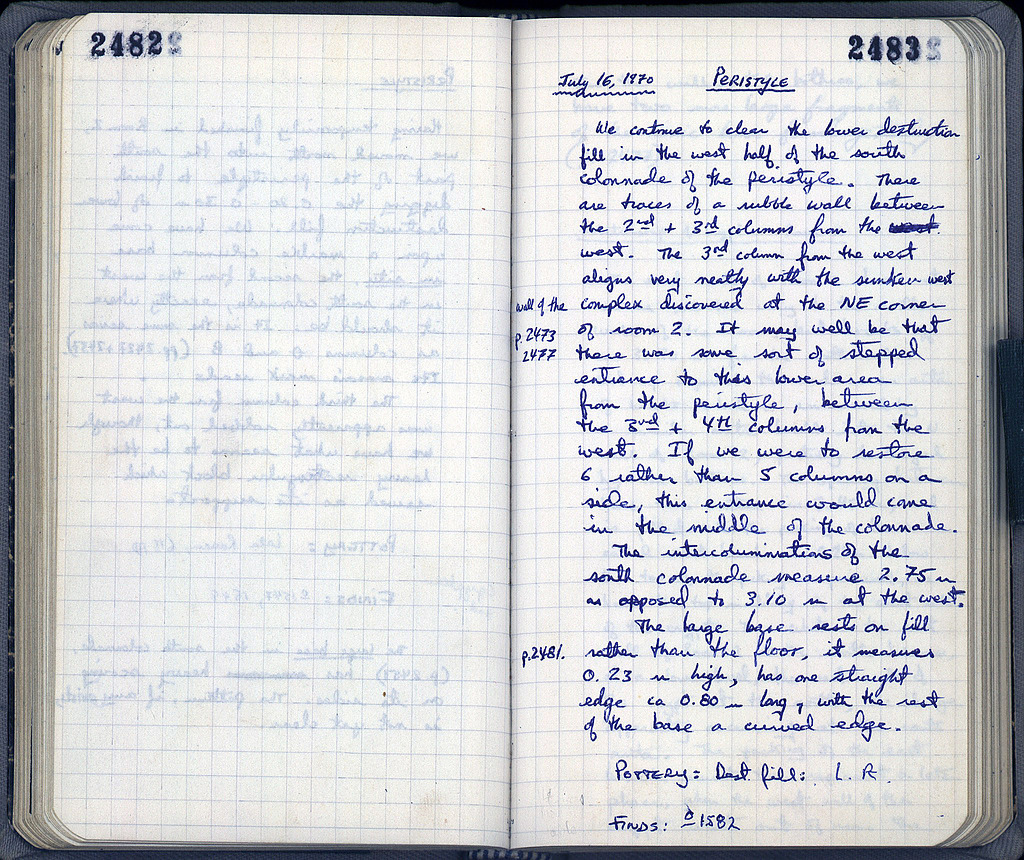 2482
2483
July 16, 1970 PERISTYLE
We continue to clear the lower destruction
fill in the west half of the south
colonnade of the peristyle. There
are traces of a rubble wall between
the 2nd + 3rd columns from the west
west. The 3rd column from the west
aligns very neatly with the sunken west
wall of the complex discovered at the NE corner
p. 2473 of room 2. It may well be that
2477 there was some sort of stepped
entrance to this lower area
from the peristyle, between
the 3rd + 4th columns from the
west. If we were to restore
6 rather than 5 columns on a
side, this entrance would come
in the middle of the colonnade.
The intercolumniations of the
south colonnade measure 2.75 m
as opposed to 3.10 m at the west.
The large base rests on fill
p. 2481. rather than the floor, it measures
0.23 m high, has one straight
edge ca 0.80 m long, with the rest
of the base a curved edge.
POTTERY: Dest. fill: L. R.
FINDS: 1582